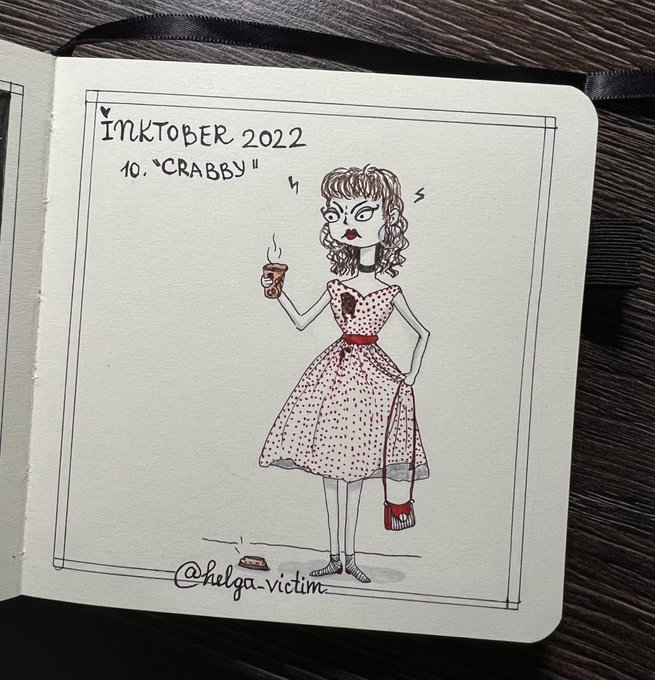 INKTOBER 2022
10. "CRABBY"
@helga_victim